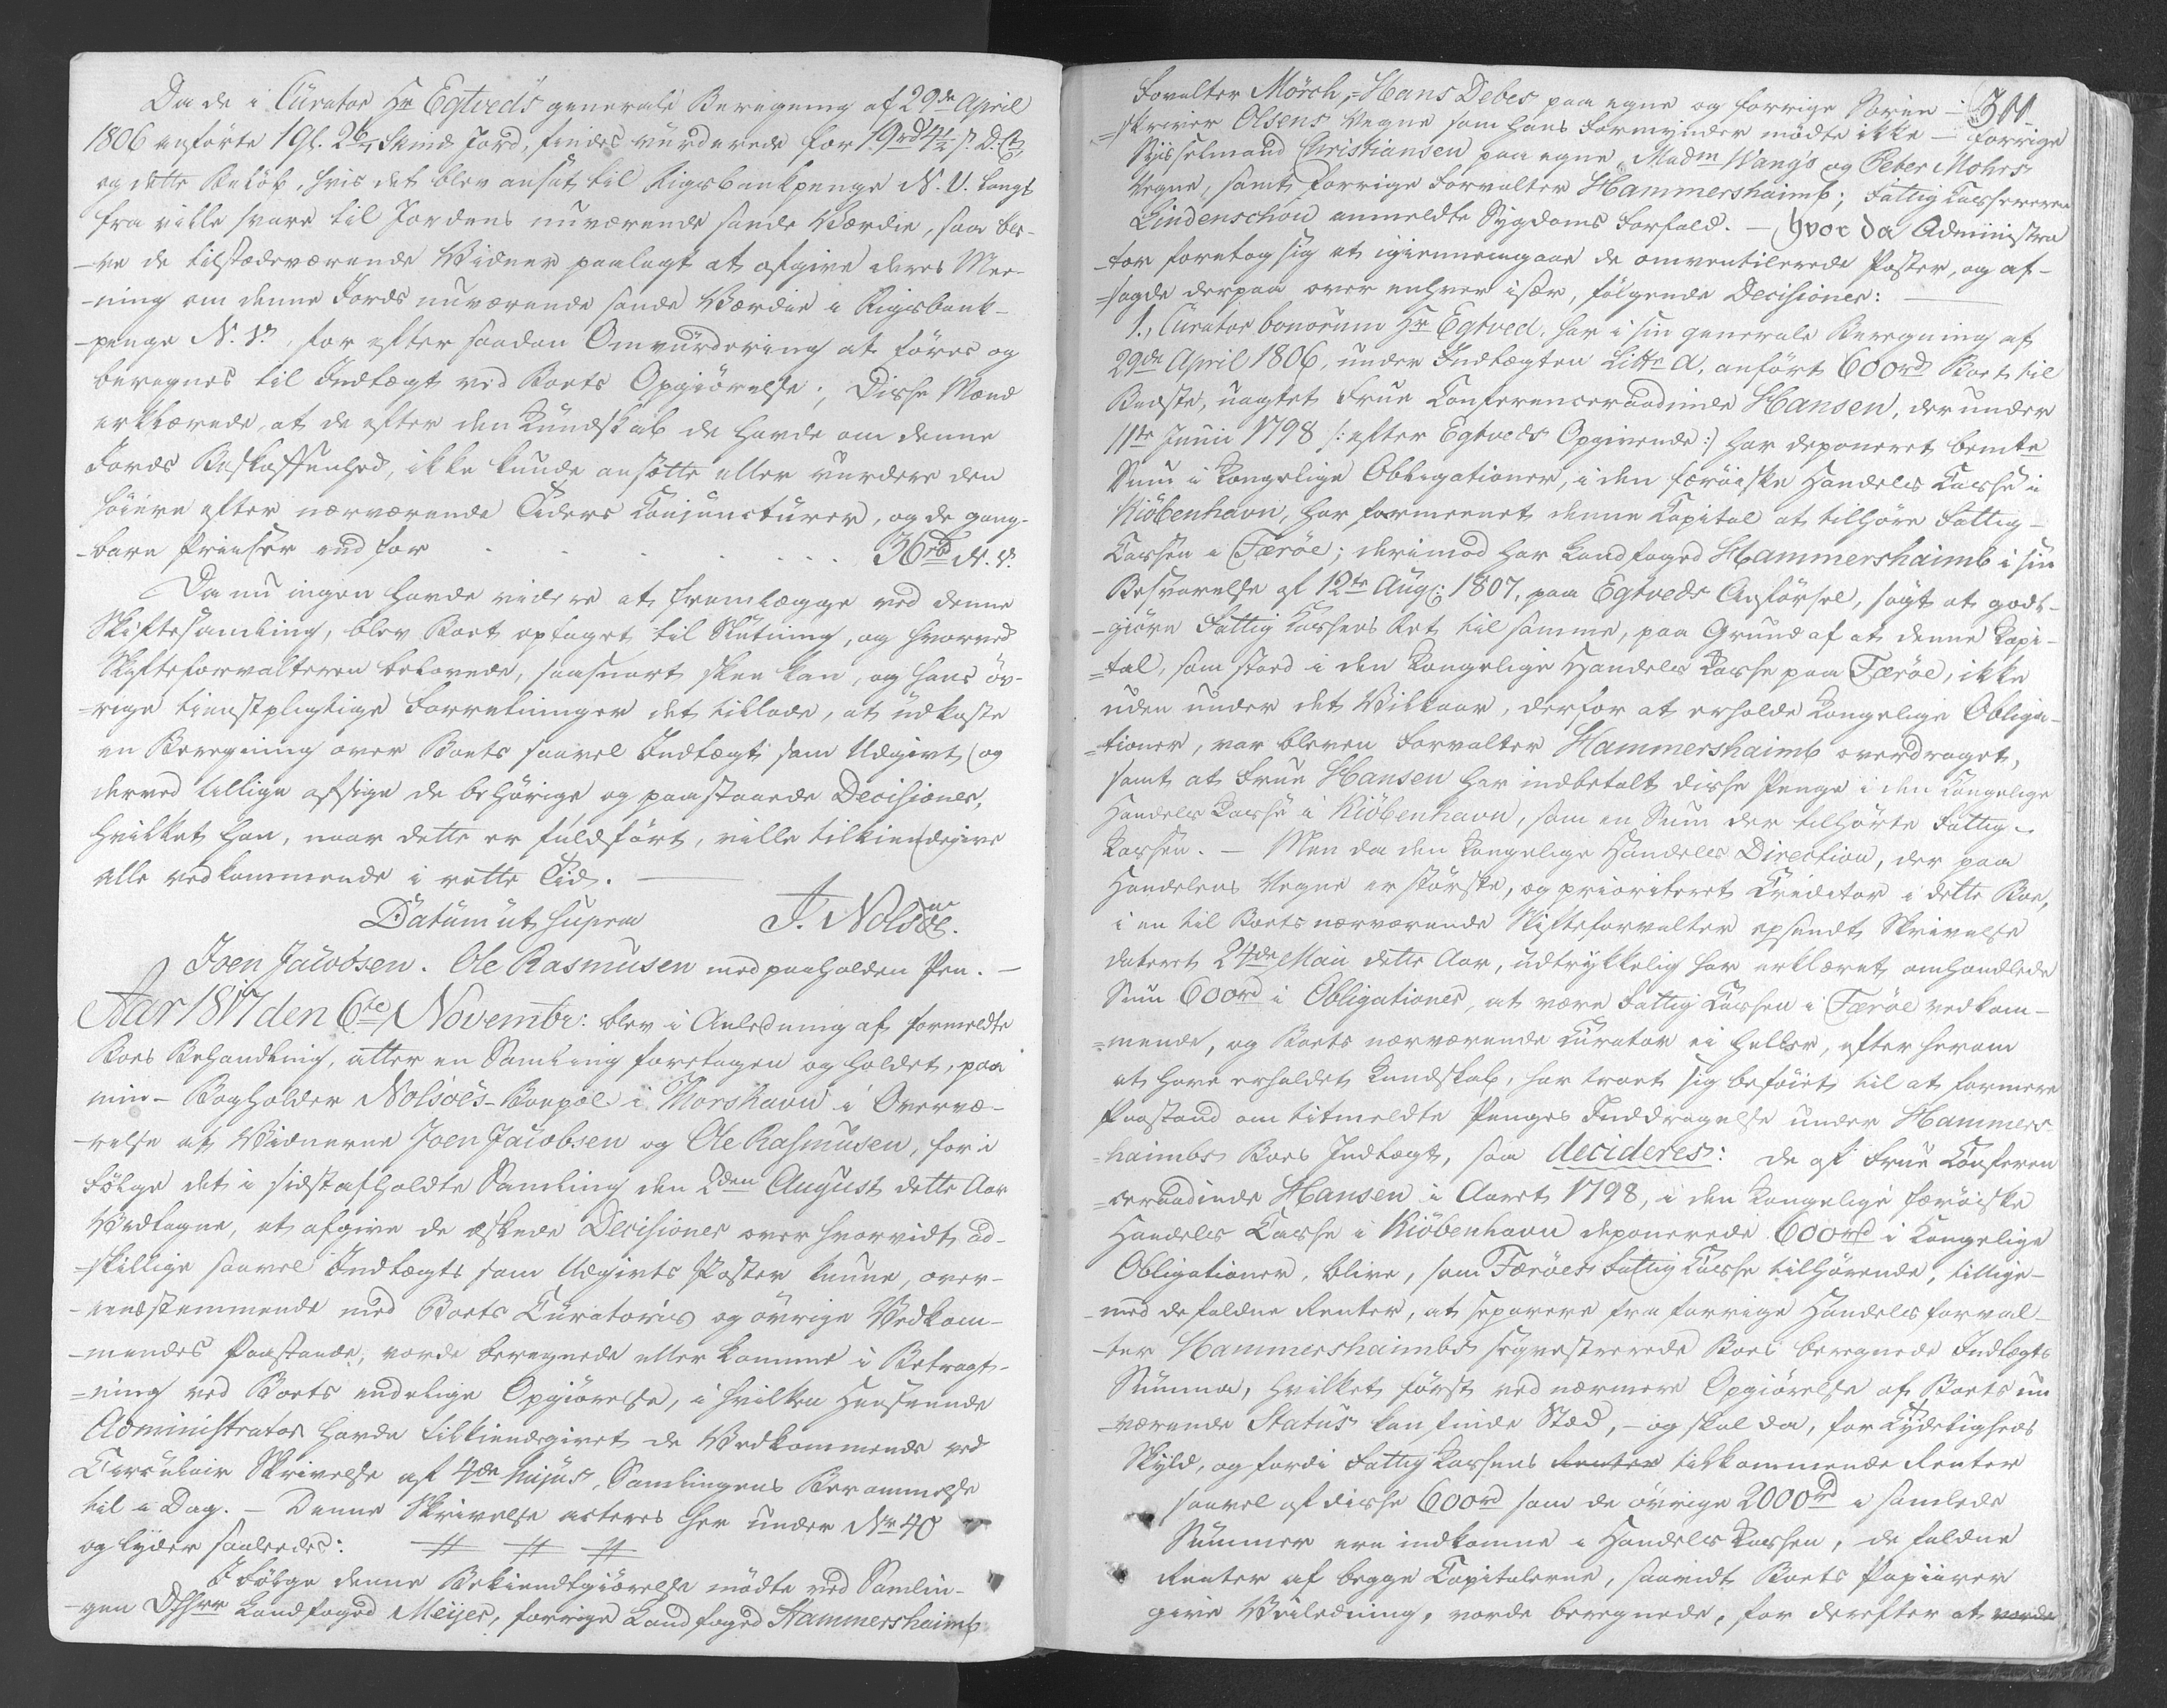 Da de i Curator Hr Egtveds generale Beregning af 29de April
1806 anførte 1 Gl. 2 6/7 Skind Jord, findes vurderede for 19rd 4 1/2 s. D. Ct,
og dette Beløb, hvis det blev ansat til Rigsbankpenge N. V. langt
fra ville svare til Jordens nuværende sande Værdie, saa ble-
-ve de tilstædeværende Vidner paalagt at afgive deres Mee-
-ning om denne Jords nuværende sande Værdie i Rigsbank-
-penge N. V., for efter saadan Omvurdering at føres og
beregnes til Indtægt ved Boets Opgiørelse; Disse Mænd
erklærede, at de efter den Kundskab de havde om denne
Jords Beskaffenhed, ikke kunde ansætte eller vurdere den
høiere efter nærværende Tiders Conjuncturer, og de gang-
-bare Priser end for . . . . . 36rb N. V.
Da nu ingen havde videre at fremlægge ved denne
Skiftesamling, blev Boet optaget til Slutning, og hvorved
Skifteforvalteren belovede, saasnart skee kan, og hans øv-
-rige tienstpligtige Forretninger det tillode, at udkaste
en Beregning over Boets saavel Indtægt som Udgivt og
derved tillige afsige de behørige og paastaaede Decisioner,
hvilket han, naar dette er fuldført, ville tilkiendegive
alle vedkommende i rette Tid. —
Datum ut supra J. Nolsøe.
Joen Jacobsen. Ole Rasmusen med paaholden Pen. —
Aar 1817 den 6te Novembr: blev i Anledning af formeldte
Boes Behandling, atter en Samling foretagen og holdet, paa
min - Bogholder Nolsøes - Bopæl i Thorshavn i Overvæ-
-relse af Vidnerne Joen Jacobsen og Ole Rasmusen, for i
Følge det i sidstafholdte Samling den 2den August dette Aar
Vedtagne, at afgive de æskede Decisioner over hvorvidt ad-
-skillige saavel Indtægts som Udgivts Poster kunne, over-
-eenstemmende med Boets Curatoris og øvrige Vedkom-
-mendes Paastande, vorde beregnede eller komme i Betragt-
=ning ved Boets endelige Opgiørelse, i hvilken Henseende
Administrator havde tilkiendegivet de Vedkommende ved
Circulair Skrivelse af 4de hujus, Samlingens Berammelse
til i Dag. — Denne Skrivelse acteres her under Nr 40
og lyder saaledes: # # #
I Følge denne Bekiendtgiørelse mødte ved Samlin-
-gen Dhrr Landfoged Meijer, forrige Landfoged Hammershaimb
Forvalter Mörch, Hans Debes paa egne og forrige Soren-
=skriver Olsens Vegne som hans Formynder mødte ikke — forrige
Sysselmand Christiansen paa egne, Madm Wangs og Peter Mohrs
Vegne, samt forrige Forvalter Hammershaimb; Fattig Casserer
Lindenschou anmeldte Sygdoms Forfald. — hvor da Administra
-tor foretog sig at igiennemgaae de omventilerede Poster, og af-
=sagde derpaa over enhver især, følgende Decisioner: —
1., Curator bonorum Hr Egtved, har i sin generale Beregning af
29de April 1806, under Indtægten Litr a, anført 600rd Boet til
Bedste, uagtet Frue Conferenceraadinde Hansen, der under
11te Junii 1798 /: efter Egtveds Opgivende :/ har deponeret bemte
Sum i Kongelige Obligationer, i den færøiske Handels Casse i
Kiöbenhavn, har formeenet denne Capital at tilhøre Fattig-
Cassen i Færöe; derimod har Landfoged Hammershaimb i sin
Besvarelse af 12te Aug: 1807, paa Egtveds Anførsel, søgt at godt-
-giøre Fattig Cassens Ret til samme, paa Grund af at denne Capi-
=tal, som stoed i den Kongelige Handels Casse paa Færöe, ikke
uden under det Vilkaar, derfor at erholde Kongelige Obliga-
=tioner, var bleven Forvalter Hammershaimb overdraget,
samt at Frue Hansen har indbetalt disse Penge i den Kongelige
Handels Casse i Kiöbenhavn, som en Sum der tilhørte Fattig-
Cassen. — Men da den Kongelige Handels Direction, der paa
Handelens Vegne er største, og prioriteret Creditor i dette Boe,
i en til Boets nærværende Skifteforvalter afsendt Skrivelse
dateret 24de Maii dette Aar, udtrykkelig har erklæret omhandlede
Sum 600rd i Obligationer, at være Fattig Cassen i Færöe vedkom-
=mende, og Boets nærværende Curator ei heller, efter herom
at have erholdet Kundskab, har troet sig beføiet til at formere
Paastand om titmeldte Penges Inddragelse under Hammers-
=haimbs Boes Indtægt, saa decideres: de af Frue Conferen
=ceraadinde Hansen i Aaret 1798, i den Kongelige færøiske
Handels Casse i Kiöbenhavn deponerede 600rd i Kongelige
Obligationer, blive, som Færöes Fattig Casse tilhørende, tillige-
-med de faldne Renter, at separere fra forrige Handelsforval-
-ter Hammershaimbs seqvestrerede Boes beregnede Indtægts
Summa, hvilket først ved nærmere Opgiørelse af Boets nu
-værende Status kan finde Sted, - og skal da, for Tydeligheds
Skyld, og fordi Fattig Cassens Renter tilkommende Renter
saavel af disse 600rd som de øvrige 2000rd i samlede
Summer ere indkomne i Handels Cassen, de faldne
Renter af begge Capitalerne, saavidt Boets Papiirer
give Veiledning, vorde beregnede, for derefter at vorde